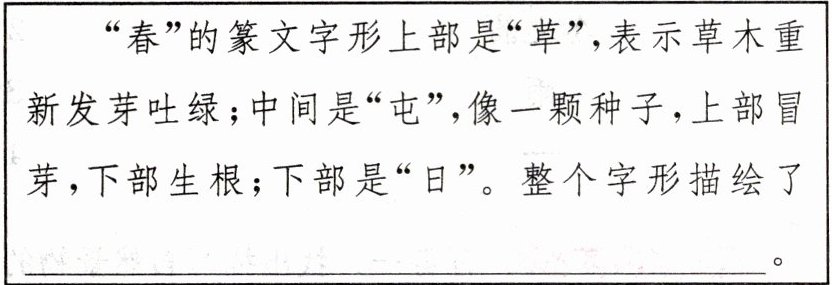 “春”的篆文字形上部是“草”,表示草木重
新发芽吐绿;中间是“屯”,像一颗种子,上部冒
芽,下部生根;下部是“日”。整个字形描绘了
。